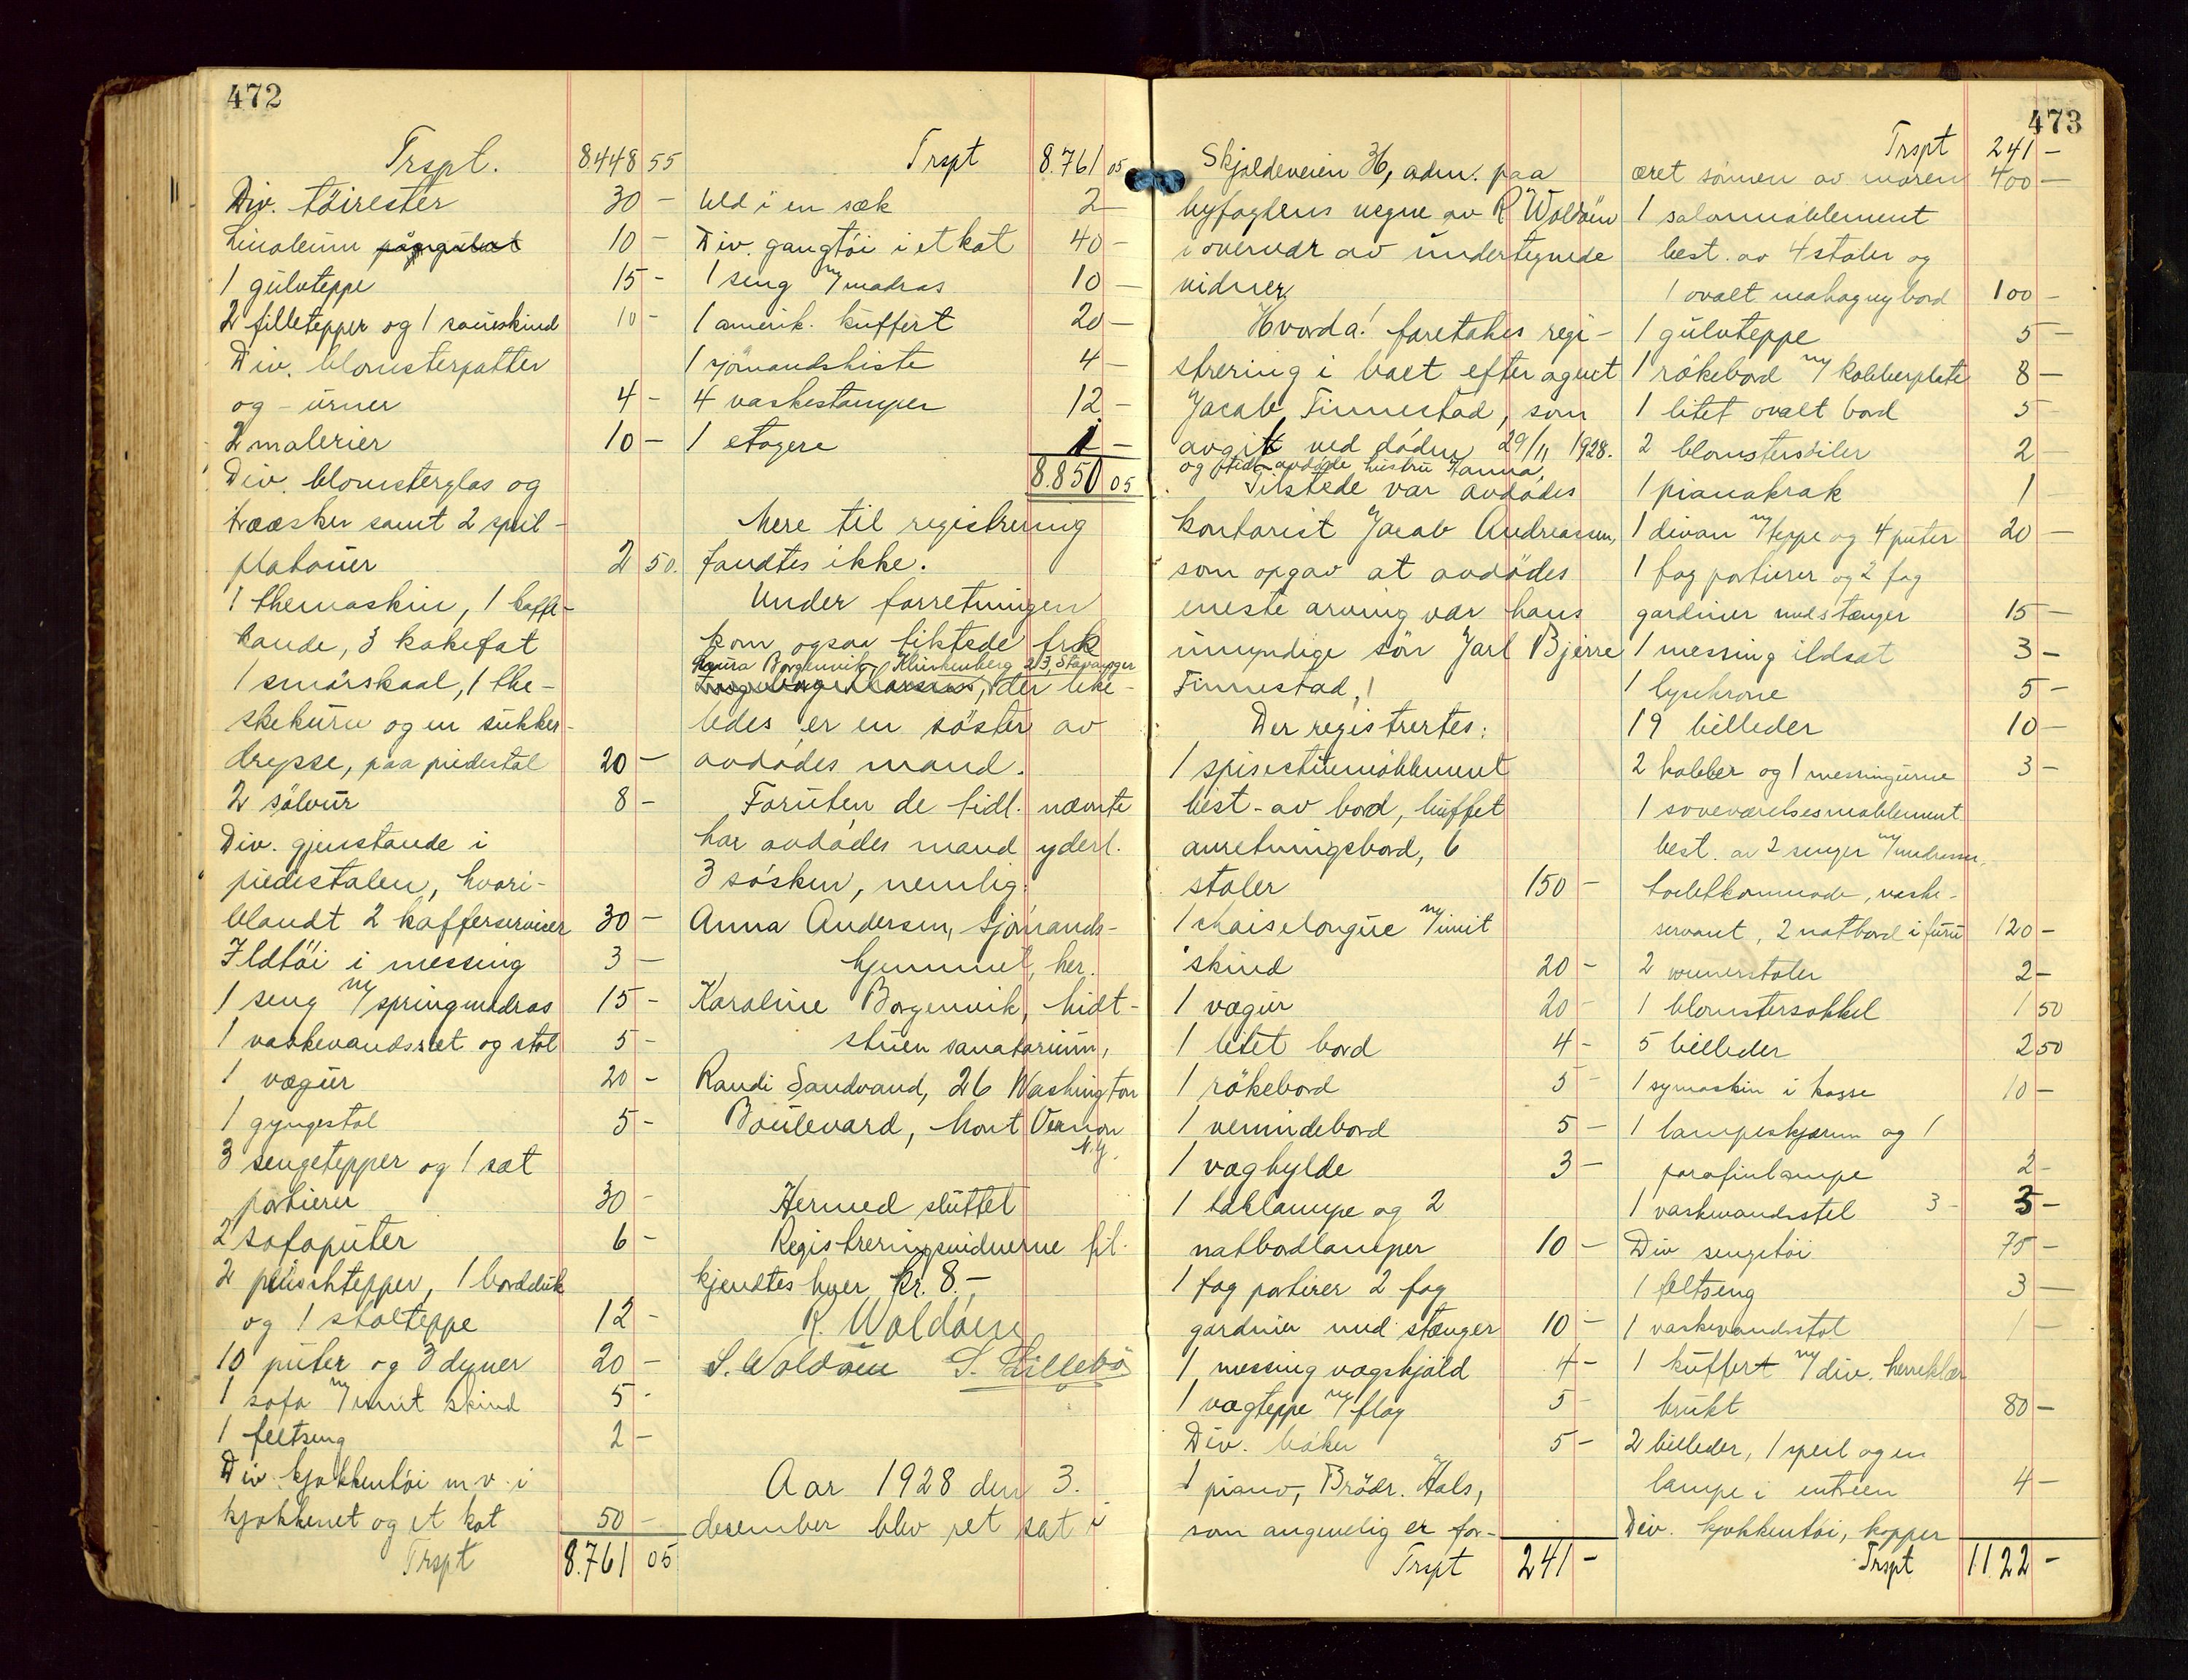 472
Trspt. 8448 55
Div. töirester 30 -
Linoleum 10 -
1 gulvteppe 15 -
2 filletepper og 1 saueskind 10 -
Div. blomsterpotter
og - urner 4 -
2 malerier 10 -
Div. blomsterglas og
trææsker samt 2 speil-
platouer 2 50.
1 themaskin, 1 kaffe-
kande, 3 kakefat
1 smörskaal, 1 the-
skekurv og en sukker-
drysse, paa piedestal 20 -
2 sölvur 8 -
Div. gjenstande i
piedestalen, hvori-
blandt 2 kaffeserviser 30 -
Ildtöi i messing 3 -
1 seng m/springmadras 15 -
1 vaskevandsset og stol 5 -
1 vægur 20 -
1 gyngestol 5 -
3 sengetepper og 1 sæt
portierer 30 -
2 sofaputer 6 -
2 plüschtepper, 1 bordduk
og 1 stolteppe 12 -
10 puter og 3 dyner 20 -
1 sofa m/imit skind 5 -
1 feltseng 2 -
Div. kjøkkentöi m.v. i
kjøkkenet og et kot 50 -
Trspt 8.761 05
Trspt 8.761 05
Uld i en sæk 2 -
Div. gangtöi i et kot 40 -
1 seng m/madras 10 -
1 amerik. kuffert 20 -
1 sjömandskiste 4 -
4 vaskestamper 12 -
1 etagere 1 -
8.850 05
Mere til registrering
fandtes ikke.
Under forretningen
kom ogsaa tilstede frk
Laura Borgenvik, Klinkenberg 23, Stavanger
, der like-
ledes er en söster av
avdödes mand.
Foruten de tidl. nævnte
har avdödes mand yderl.
3 sösken, nemlig:
Anna Andersen, Sjömands-
hjemmet, her.
Karoline Borgenvik, Midt-
stuen sanatorium,
Randi Sandvand, 26 Washington
Boulevard, Mont Vernon
N.Y.
Hermed sluttet
Registreringsvidnerne til-
kjendtes hver kr. 8.-
R. Waldöen
S. Waldöen S. Lillebö
Aar 1928 den 3.
desember blev ret sat i
473
Skjoldeveien 36, adm. paa
byfogdens vegne av R Waldöen
i overvær av undertegnede
vidner,
Hvorda! foretakes regi-
strering i boet efter agent
Jacob Finnestad, som
avgik ved döden 29/11 1928.
og tidl. avdöde hustru Hanna,
Tilstede var avdödes
kontorist Jacob Andreassen,
som opgav at avdödes
eneste arving var hans
umyndige sön Jarl Bjerre
Finnestad,!
Der registrertes:
1 spisestuemöblement
best. av bord, buffet
anretningsbord, 6
stoler 150 -
1 chaiselongue m/imit
skind 20 -
1 vægur 20 -
1 litet bord 4 -
1 rökebord 5 -
1 venindebord 5 -
1 væghylde 3 -
1 taklampe og 2
natbordlamper 10 -
1 fag portierer 2 fag
gardiner med stænger 10 -
1 messing vægskjold 4 -
1 vægteppe m/flag 5 -
Div. böker 5 -
1 piano, Brödr. Hals,
som angivelig er for-
Trspt 241 -
Trspt 241 -
æret sönnen av moren 400 -
1 salonmøblement
best. av 4 stoler og
1 ovalt mahognybord 100 -
1 gulvteppe 5 -
1 rökebord m/kobberplate 8 -
1 litet ovalt bord 5 -
2 blomstersöiler 2 -
1 pianokrak 1 -
1 divan m/teppe og 4 puter 20 -
1 fag portierer og 2 fag
gardiner med stænger 15 -
1 messing ildsæt 3 -
1 lysekrone 5 -
19 billeder 10 -
2 kobber og 1 messingurne 3 -
1 soveværelsesmøblement
best. av 2 senger m/madrasser,
toiletkommode, vaske-
servant, 2 natbord i furu 120 -
2 wienerstoler 2 -
1 blomstersokkel 1 50
5 billeder 2 50
1 symaskin i kasse 10 -
1 lampeskjærm og 1
parafinlampe 2 -
1 vaskevandsstel 3 - 3 -
Div sengetöi 75 -
1 feltseng 3 -
1 vaskevandsstol 1 -
1 kuffert m/div. herreklær
brukt 80 -
2 billeder, 1 speil og en
lampe i entreen 4 -
Div. kjøkkentöi, kopper
Trspt 1122 -